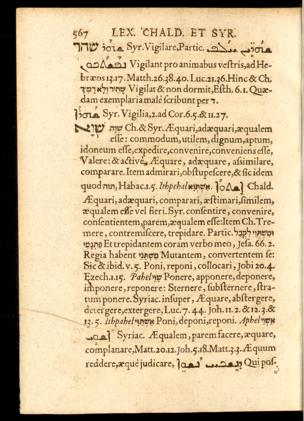 567 LEX. CHALD. ET SYR.
Syr. Vigilare, Partic.
Vigilant pro animabus vestris, ad He-
bræos 13.17. Matth. 26.38.40. Luc. 21.36. Hinc & Ch.
Vigilat & non dormit, Esth. 6.1. Quæ-
dam exemplaria malè scribunt per ד.
Syr. Vigilia, 2. ad Cor. 6.5. & 11.27.
Ch. & Syr. Æquari, adæquari, æqualem
esse: commodum, utilem, dignum, aptum,
idoneum esse, expedire, convenire, conveniens esse,
Valere: & activè Æquare, adæquare, assimilare,
comparare. Item admirari, obstupescere, & sic idem
quod תוה, Habac. 1.5. Ithpehal Chald.
Æquari, adæquari, comparari, æstimari, similem,
æqualem esse vel fieri. Syr. consentire, convenire,
consentientem, parem, æqualem esse: Item Ch. Tre-
mere, contremiscere, trepidare. Partic.
Et trepidantem coram verbo meo, Jesa. 66.2.
Regia habent Mutantem, convertentem se:
Sic & ibid. v. 5. Poni, reponi, collocari, Jobi 20.4.
Ezech. 1.15. Pahel Ponere, apponere, deponere,
imponere, reponere: Sternere, substernere, stra-
tum ponere. Syriac. insuper, Æquare, abstergere,
detergere, extergere, Luc. 7.44. Joh. 11.2. & 12.3. &
13.5. Ithpahel Poni, deponi, reponi. Aphel
Syriac. Æqualem, parem facere, æquare,
complanare, Matt. 20.12. Joh. 5.18. Matt. 3.3. Æquum
reddere, æquè judicare, Qui pos-